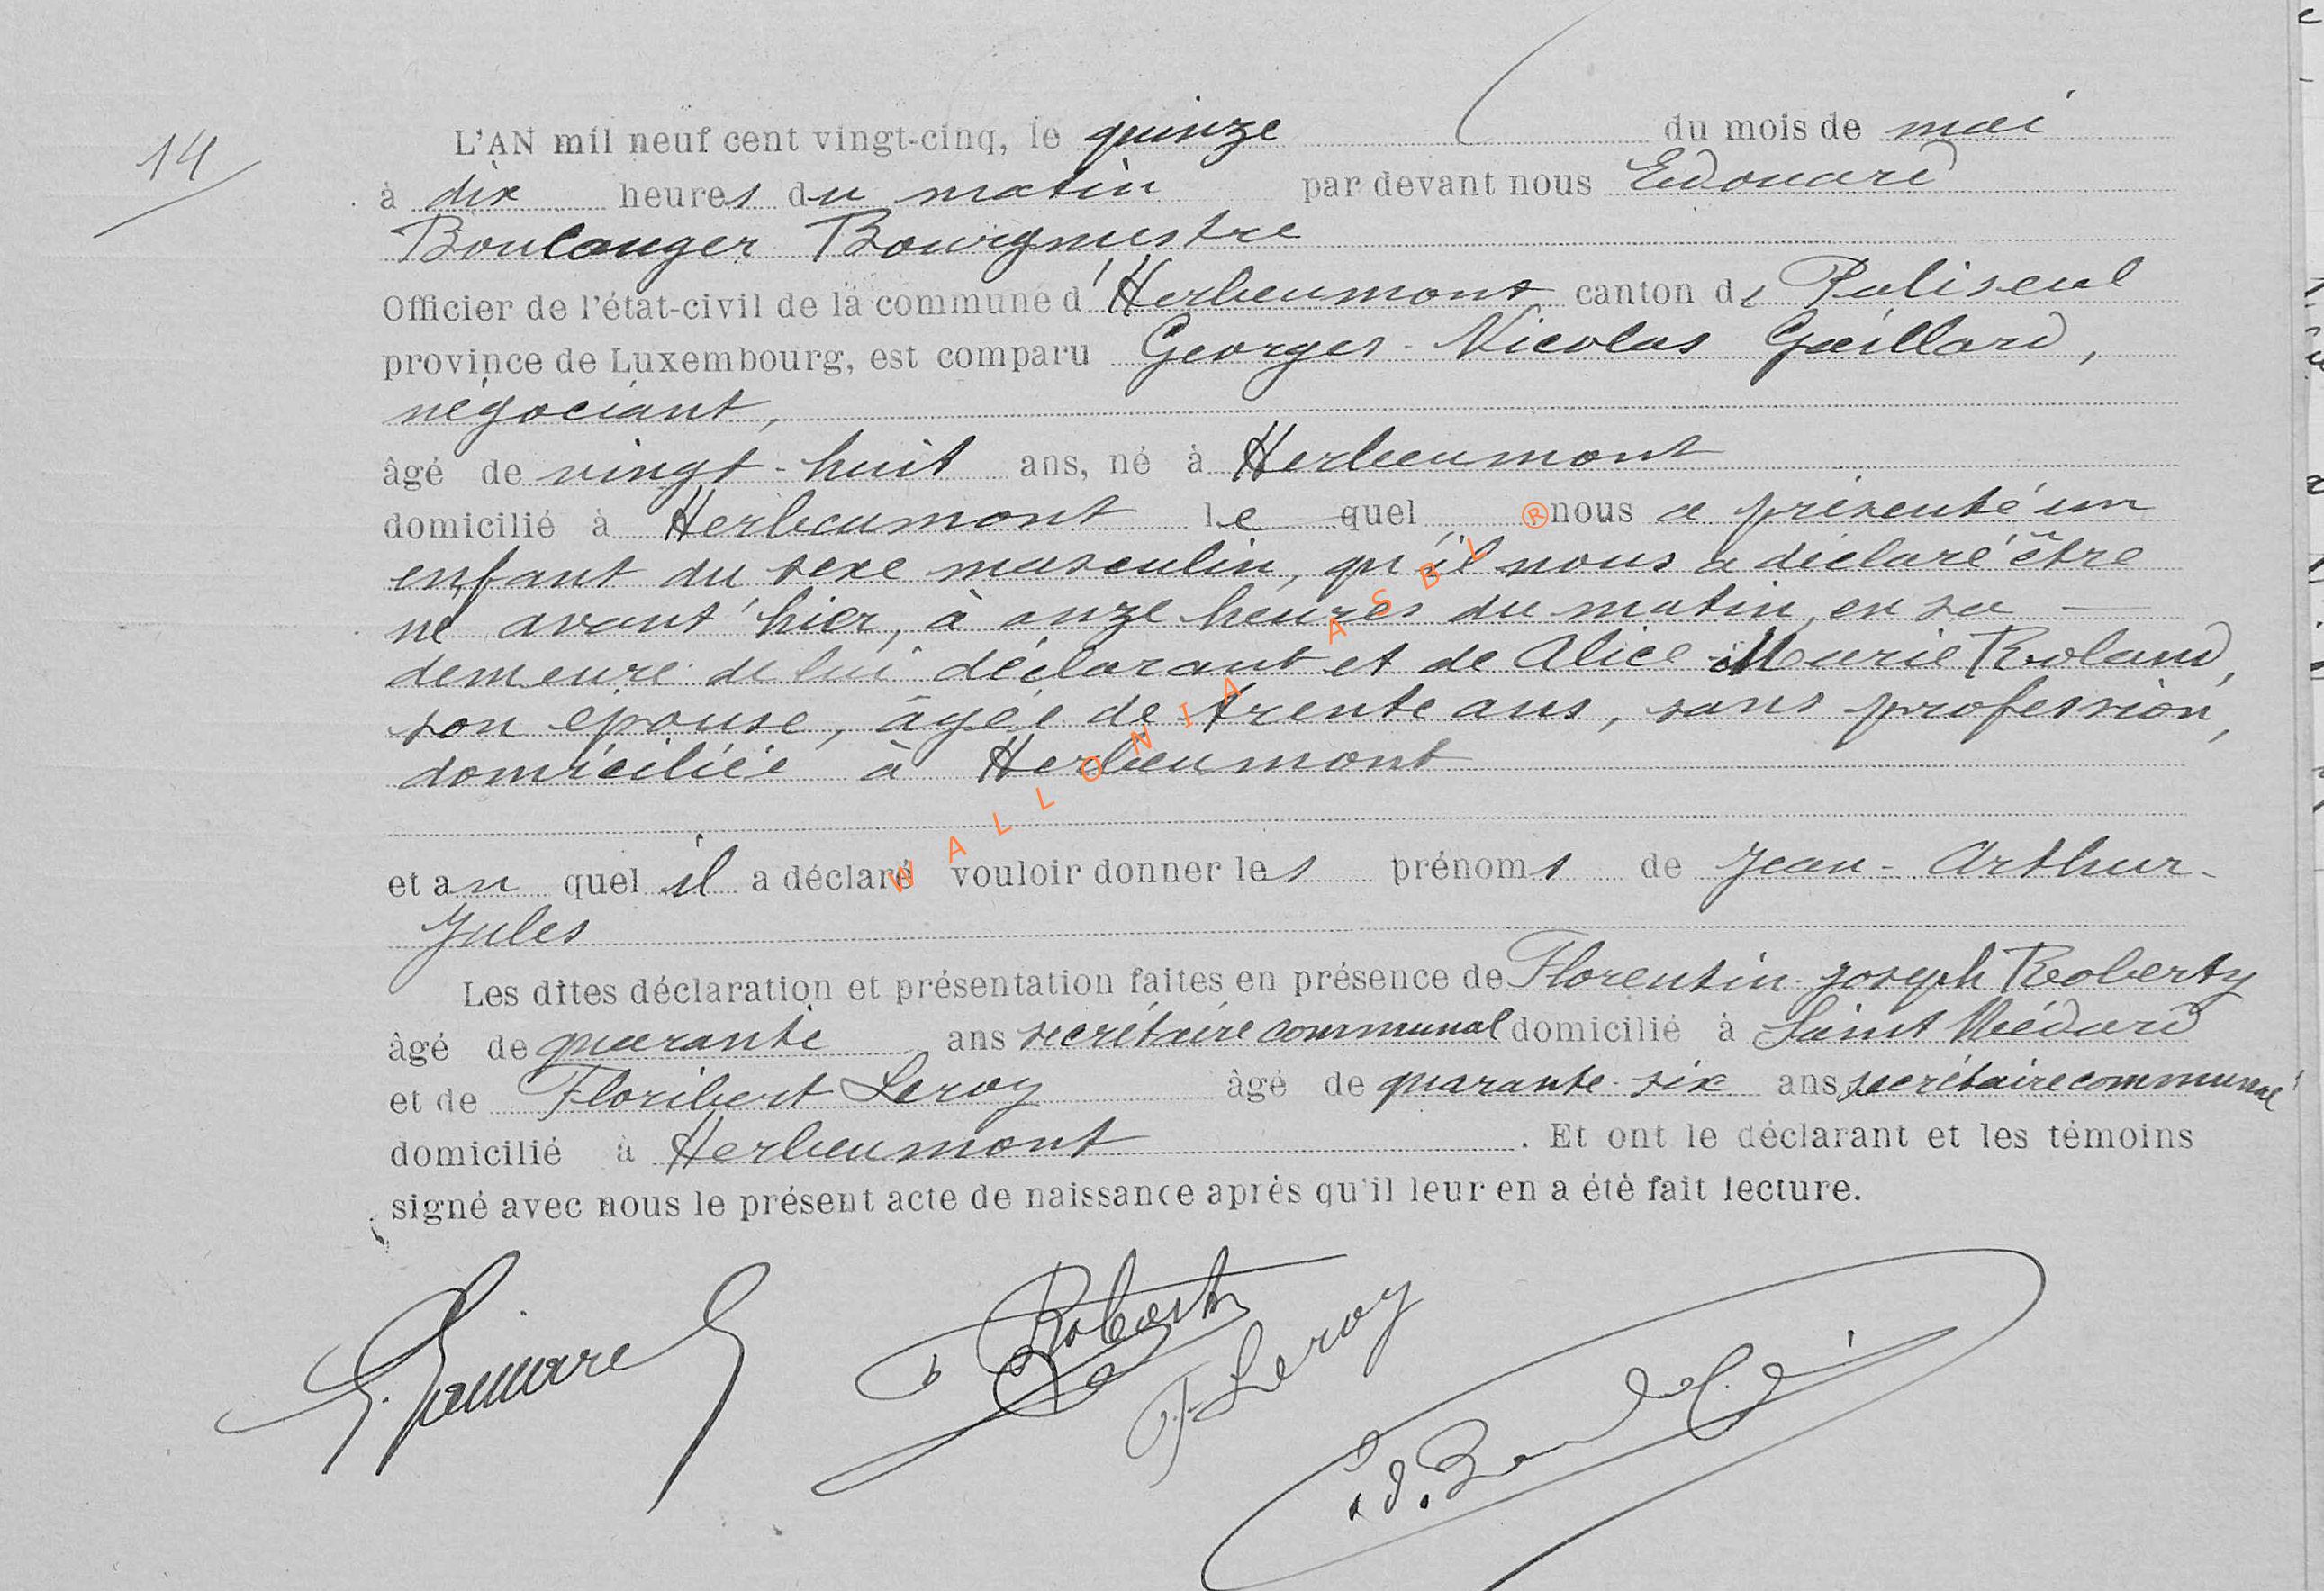 14
L'AN mil neuf cent vingt-cinq, le quinze du mois de mai
à dix heures du matin par devant nous Edouard
Boulanger Bourgmestre
Officier de l'état-civil de la commune d'Herbeumont canton de Paliseul
province de Luxembourg, est comparu Georges-Nicolas Gaillard,
négociant,
âgé de vingt-huit ans, né à Herbeumont
domicilié à Herbeumont le quel nous a présenté un
enfant du sexe masculin, qu'il nous a déclaré être
né avant hier, à onze heures du matin, en sa
demeure de lui déclarant et de Alice-Marie Roland,
son épouse, âgée de trente ans, sans profession,
domiciliée à Herbeumont
et au quel il a déclaré vouloir donner les prénoms de Jean-Arthur-
Jules
Les dites déclaration et présentation faites en présence de Florentin-Joseph Roberty
âgé de quarante ans secrétaire communal domicilié à Saint Médard
et de Floribert Leroy âgé de quarante-six ans, secrétaire communal
domicilié à Herbeumont. Et ont le déclarant et les témoins
signé avec nous le présent acte de naissance après qu'il leur en a été fait lecture.
G. Gaillard Roberty F. Leroy
WALLONIA ASBL ®